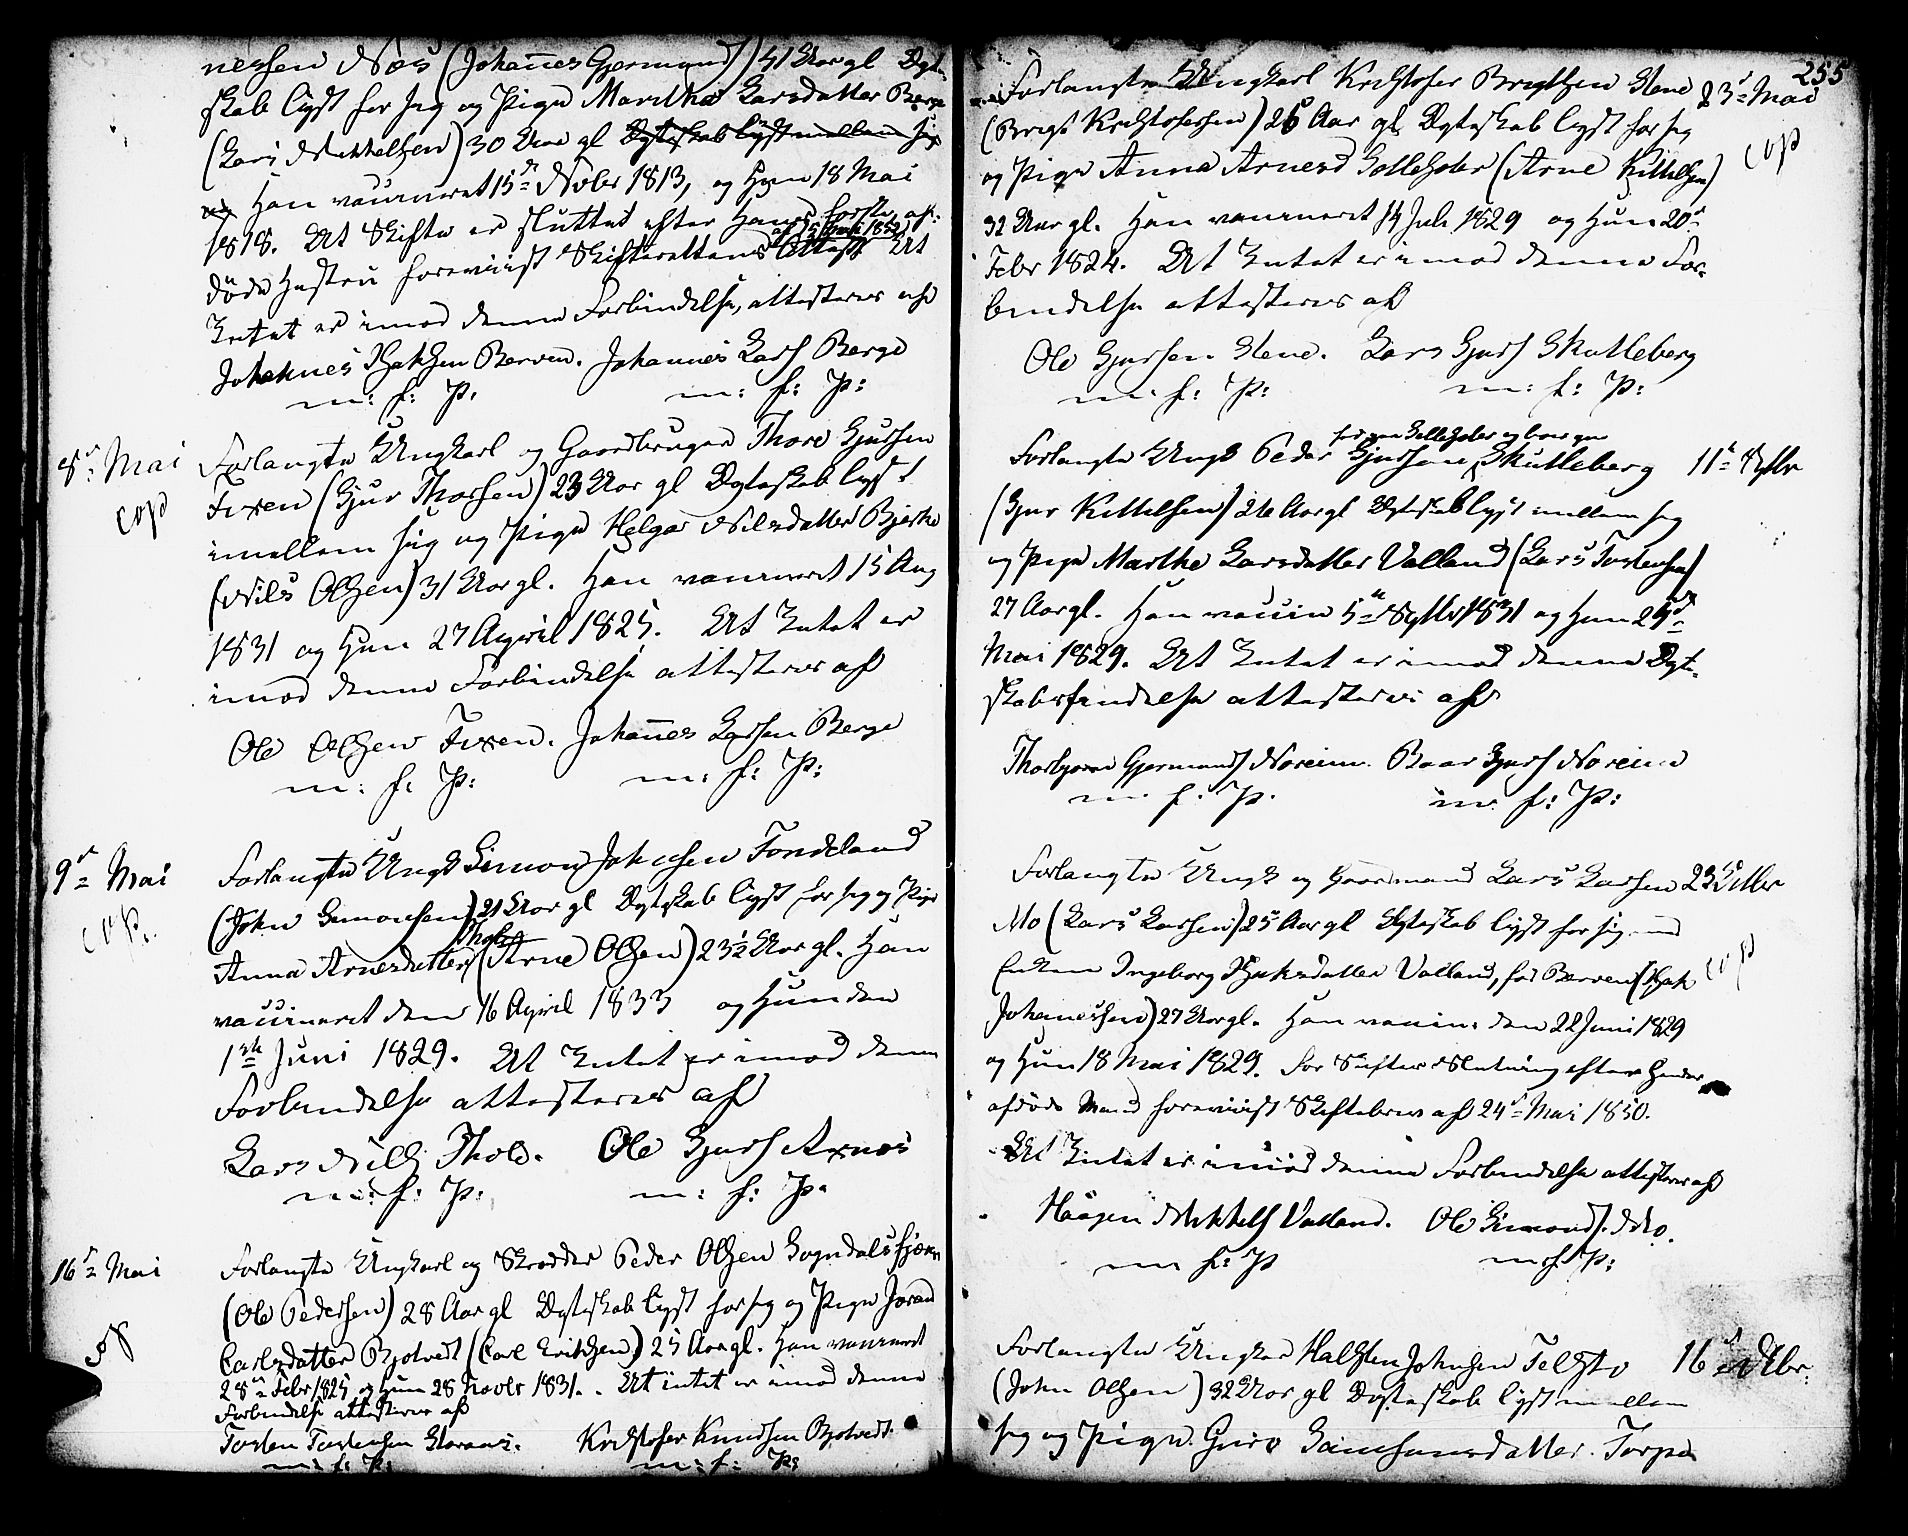 nessen Næs (Johannes Gjermunds) 51 Aar gl Ægte-
skab lyst for sig og Pigen Maritha Larsdatter Berge
(Lars Mikkelsen) 30 Aar gl Ægteskab lyst mellem sig
og Han vaccineret 15de Novbr 1813, og Hun 18 Mai
1818. At Skifte er sluttet efter Hans første af-
af 15 Juli 1852
døde Hustru foreviist Skifterettens Attest At
Intet er imod denne Forbindelse, attesteres af
Johannes Hakesen Berven. Johannes Lars Berge
m: f: P. m: f: P:
8de Mai
Forlangte Ungkarl og Gaardbruger Thore Gjursen
cop
Fixen (Gjur Thorsen) 23 Aar gl Ægteskab lyst
imellem sig og Pigen Helga Nilsdatter Bjerke
(Nils Olsen) 31 Aar gl. Han vaccineret 15 Aug
1831 og Hun 27 April 1825. At Intet er
imod denne Forbindelse attesteres af
Ole Olsen Fixen. Johannes Larsen Berge
m: f: P: m: f: P:
9de Mai
Forlangte Ungk Simon Johnsen Tondeland
cop.
(John Simonsen) 21 Aar gl Ægteskab lyst for sig og Pige
Thole
Anna Arnesdatter (Arne Olsen) 23½ Aar gl. Han
vaccineret den 16 April 1833 og Hun den
1ste Juni 1829. At Intet er imod denne
Forbindelse attesteres af
Lars Nils Thole. Ole Gjurs Axnæs
m: f: P: m: f: P.
16de Mai
Forlangte Ungkarl og Skrædder Peder Olsen Sogndalsfjæren
(Ole Pedersen) 28 Aar gl Ægteskab lyst for sig og Pigen Joran
Carlsdatter Botvedt (Carl Eriksen) 25 Aar gl. Han vaccineret
28de Febr 1825 og Hun 28 Novbr 1831. At intet er imod denne
Forbindelse attesteres af
Torsten Torstensen Kristofer Knudsen Botvedt
m: f: P: m: f: P:
255
Forlangte Ungkarl Kristofer Brigtsen Stene 23de Mai
(Brigt Kristofersen) 26 Aar gl Ægteskab lyst for sig
cop
og Pigen Anna Arnesd Solesnes (Arne Kittelsen)
32 Aar gl. Han vaccineret 14 Juli 1829 og Hun 20de
Febr 1824. At Intet er imod denne For-
bindelse attesteres af
Ole Gjursen Stene. Lars Gjurs Skutleberg
m: f: P: m: f: P:
Forlangte Ungk Peder Gjursen Skutleberg 11te Septbr
(Gjur Kittelsen) 26 Aar gl Ægteskab lyst mellem sig
og Pigen Marthe Larsdatter Valland (Lars Torstensen)
27 Aar gl. Han vaccin 5te Septbr 1831 og Hun 29de
Mai 1829. At Intet er imod denne Ægte-
skabsforbindelse attesteres af
Thorbjørn Gjermunds Noreim. Baar Gjurs Noreim
m. f: P. m. f: P:
Forlangte Ungk og Gaardmand Lars Larsen 23 Octbr
Mo (Lars Larsen) 25 Aar gl Ægteskab lyst for sig med
Enken Ingeborg Haksdatter Valland, fød Berven (Hak
cop
Johannessen) 27 Aar gl. Han vaccin: den 22 Juni 1829
og Hun 18 Mai 1829. For Skiftes Slutning efter Hendes
afdøde Mand foreviist Skiftebrev af 24de Mai 1850.
At Intet er imod denne Forbindelse attesteres af
Haagen Mikkels Valland. Ole Simons. Mo.
m f: P m: f: P:
Forlangte Ungkar Halsten Johnsen Telsto 16de Octbr
(John Olsen) 32 Aar gl Ægteskab lyst mellem
sig og Pigen Guro Samsonsdatter Torpe